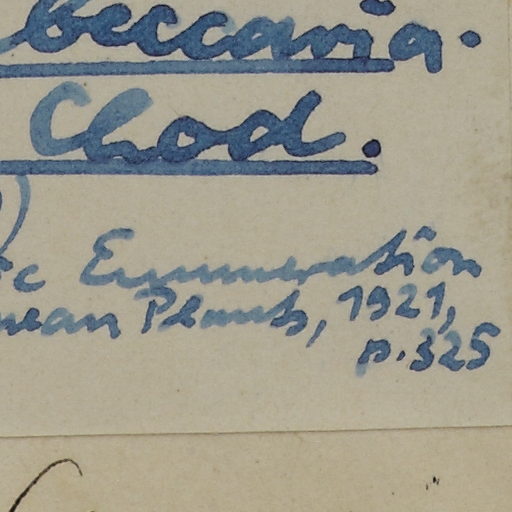 beccaria.
Chod.
)
c Enumeration
nean Plants, 1921,
p. 325